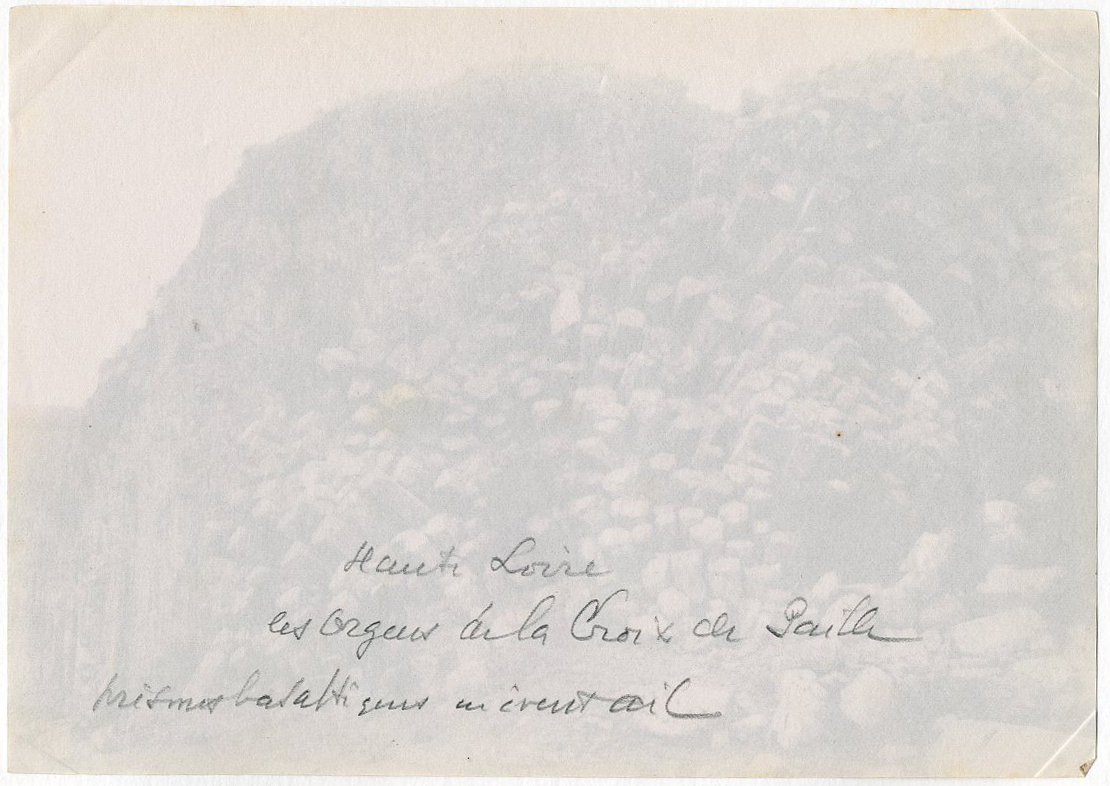 Haute Loire
les orgues de la Croix de Paille
prismes basaltiques en éventail